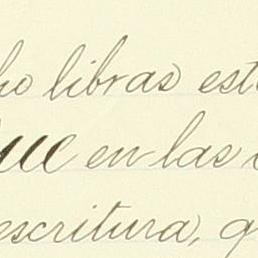 ho libras est
que en las
escritura, q